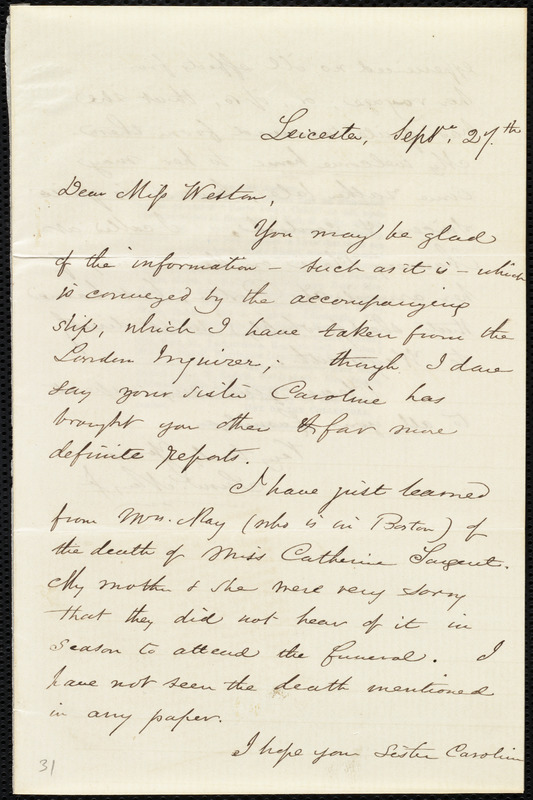 Leicester, Septr. 27th
Dear Miss Weston,
You may be glad
of the information – such as it is – which
is conveyed by the accompanying
slip, which I have taken from the
London Inquirer; though I dare
say your sister Caroline has
brought you other & far more
definite reports.
I have just learned
from Mrs. May (who is in Boston) of
the death of Miss Catherine Sargent.
My mother & she were very sorry
that they did not hear of it in
season to attend the funeral. I
have not seen the death mentioned
in any paper.
I hope your Sister Caroline
31